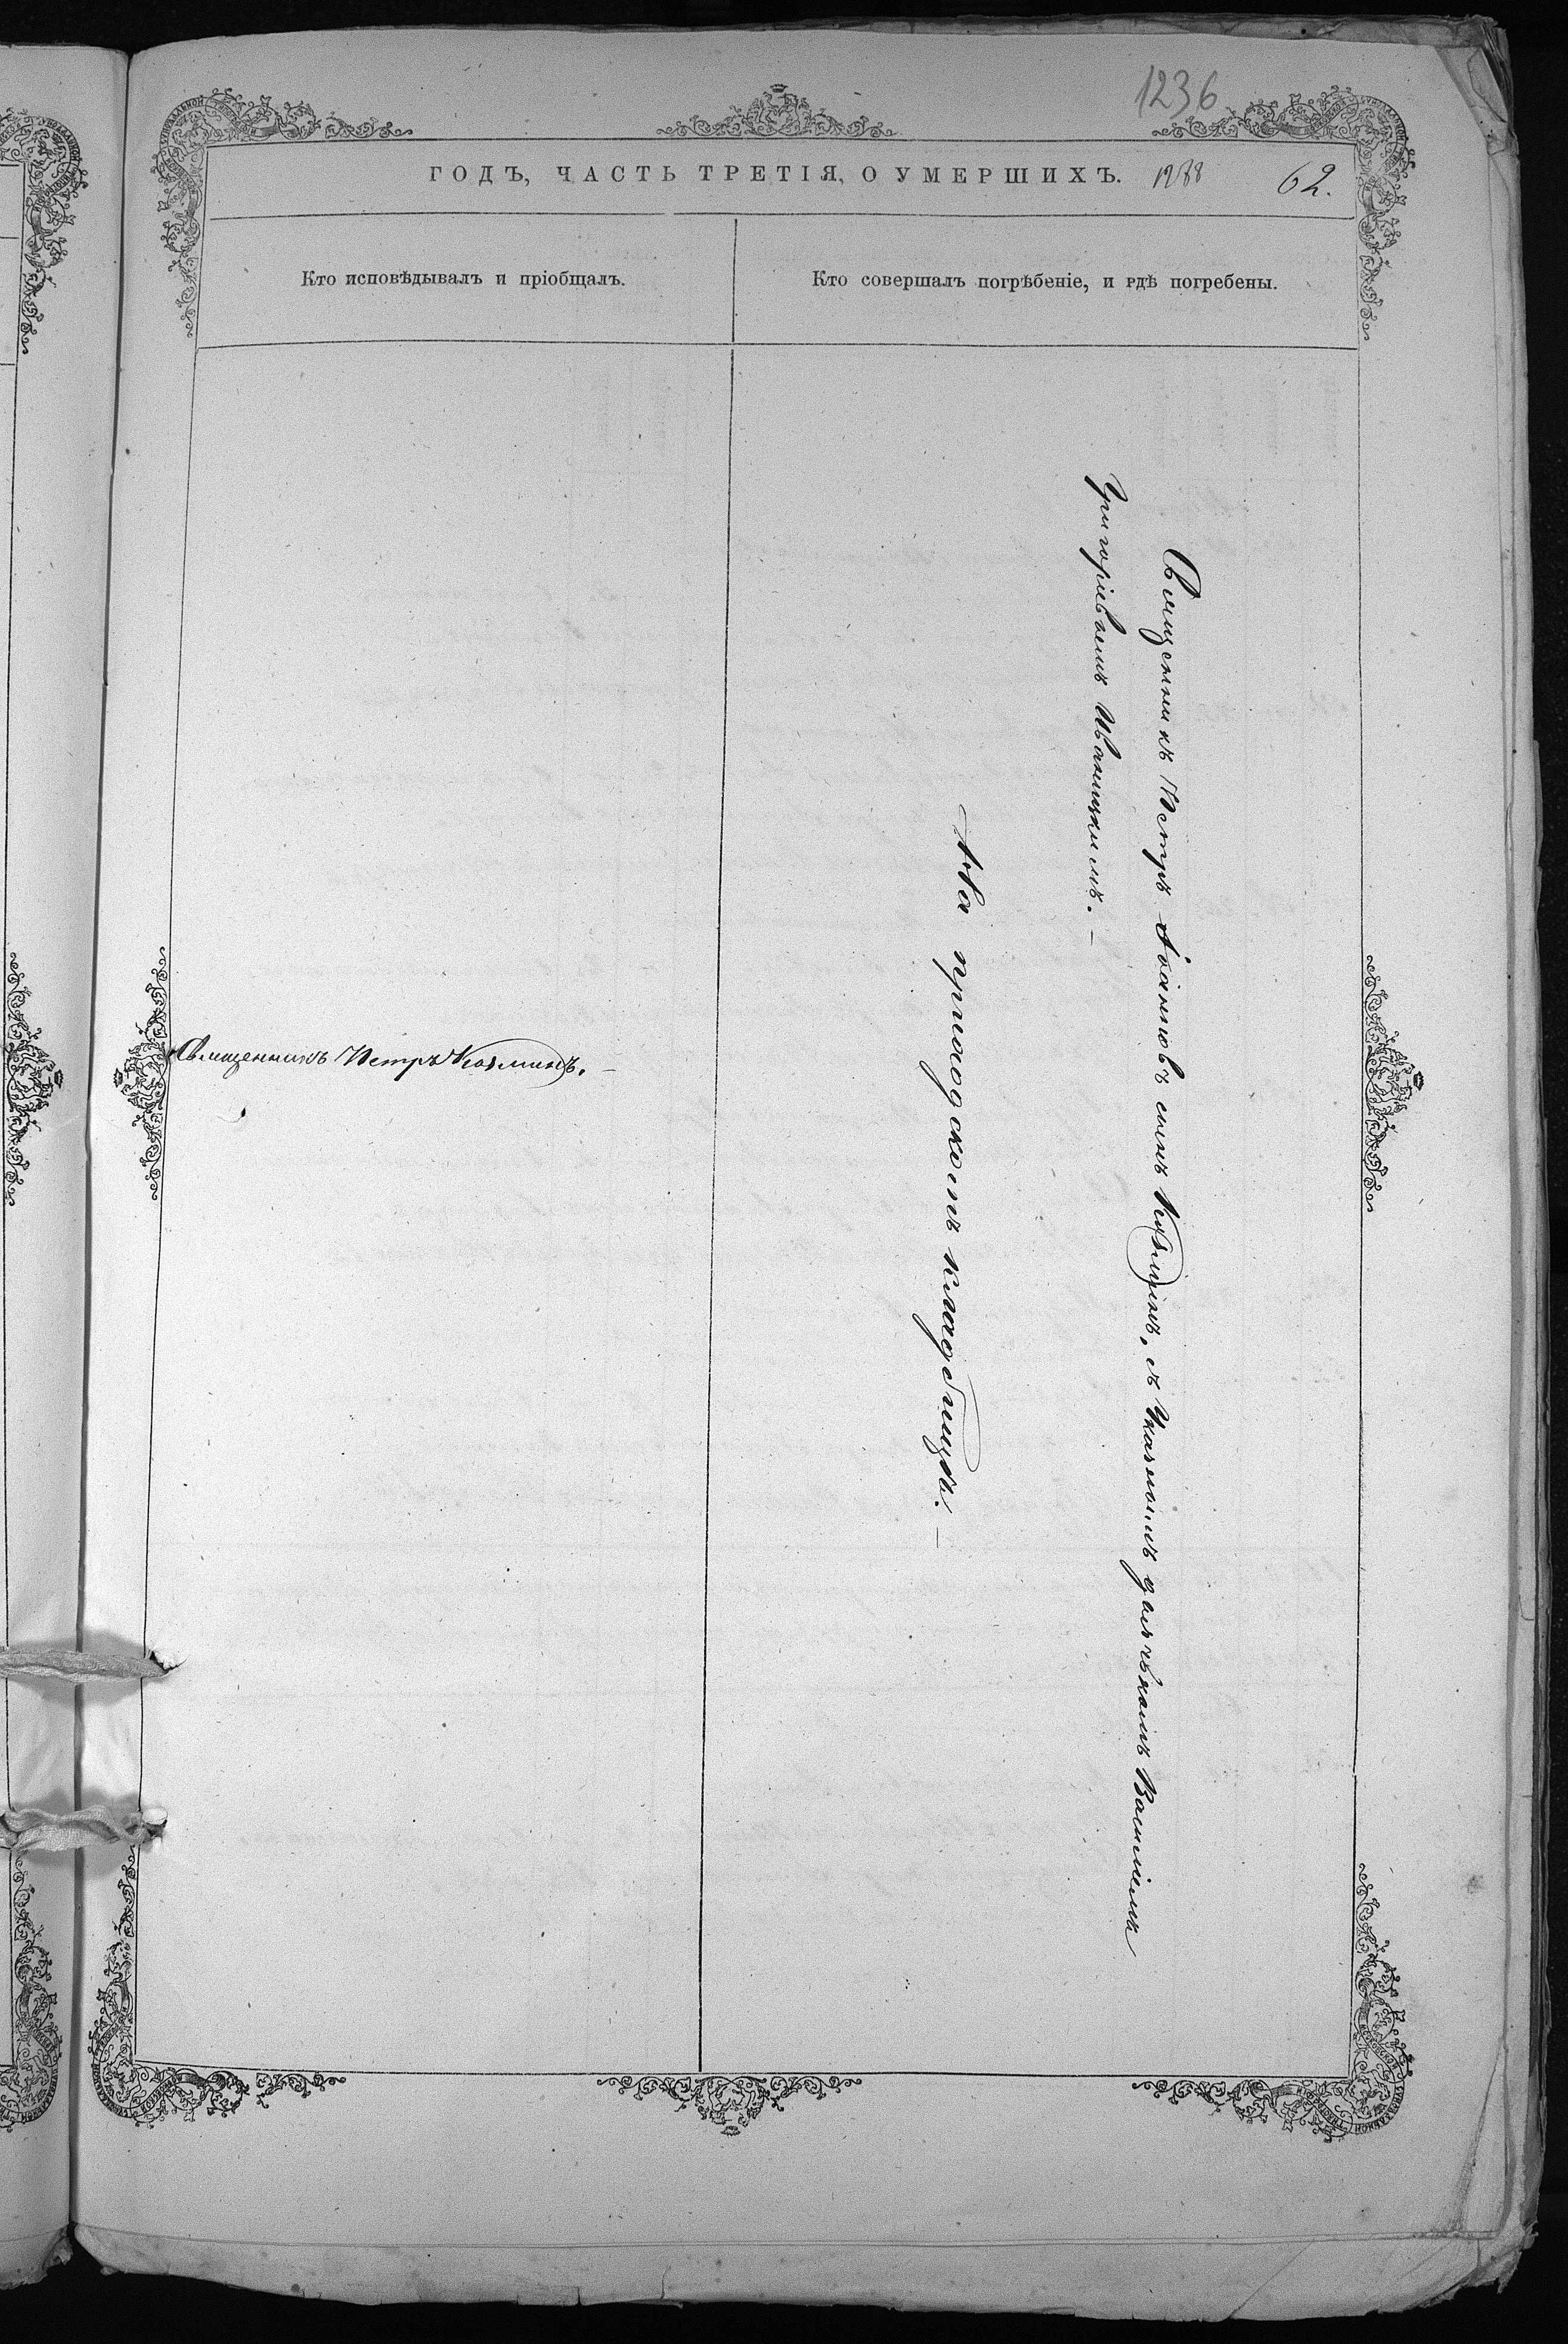 1236
ГОДЪ, ЧАСТЬ ТРЕТІЯ, О УМЕРШИХЪ. 62.
Кто исповѣдывалъ и пріобщалъ.
Кто совершалъ погрѣбеніе, и гдѣ погребены.
Священникъ Петръ Козминъ. —
Священникъ Петръ Іоанновъ сынъ Козминъ, съ Указнымъ дьячкомъ Василіемъ
Григоріевымъ Иваницкимъ. —
На приходскомъ кладбищѣ. —